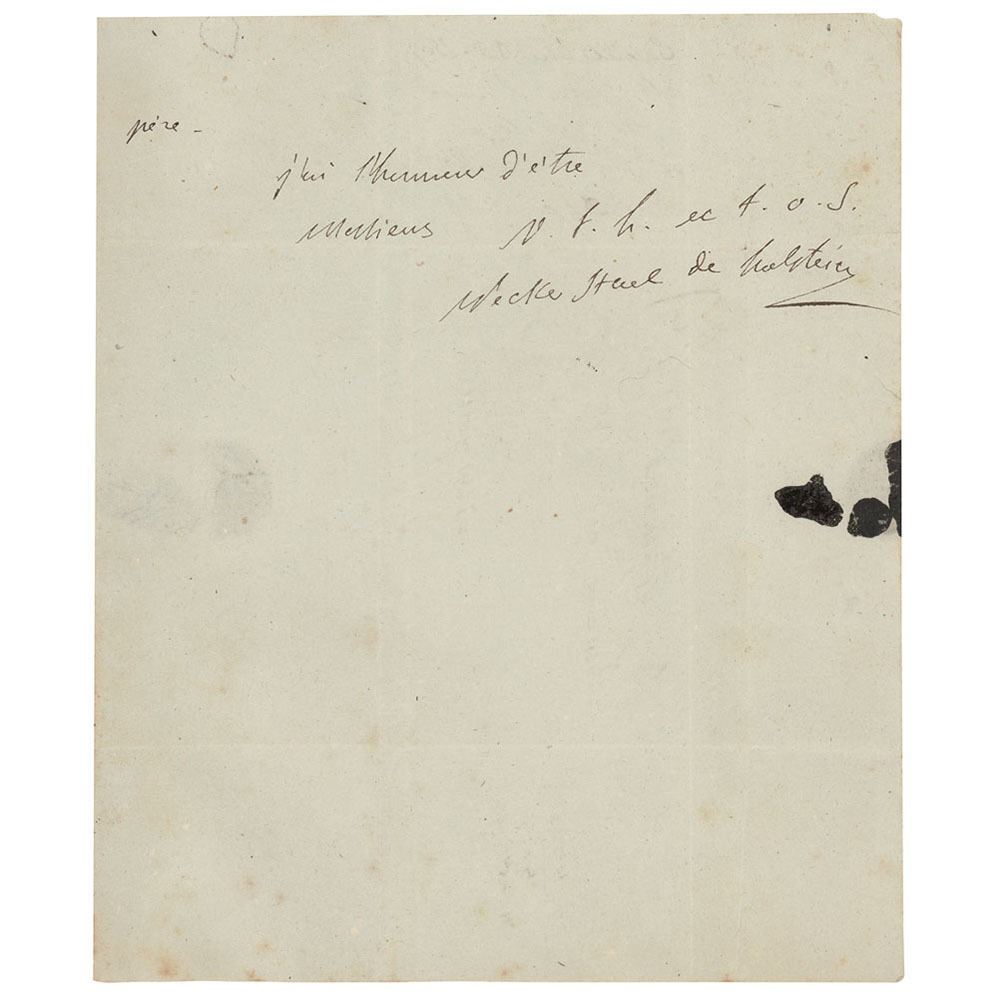 père -
j'ai l'honneur d'être
Messieurs v. t. h. et t. o. S.
Necker Stael de holstein